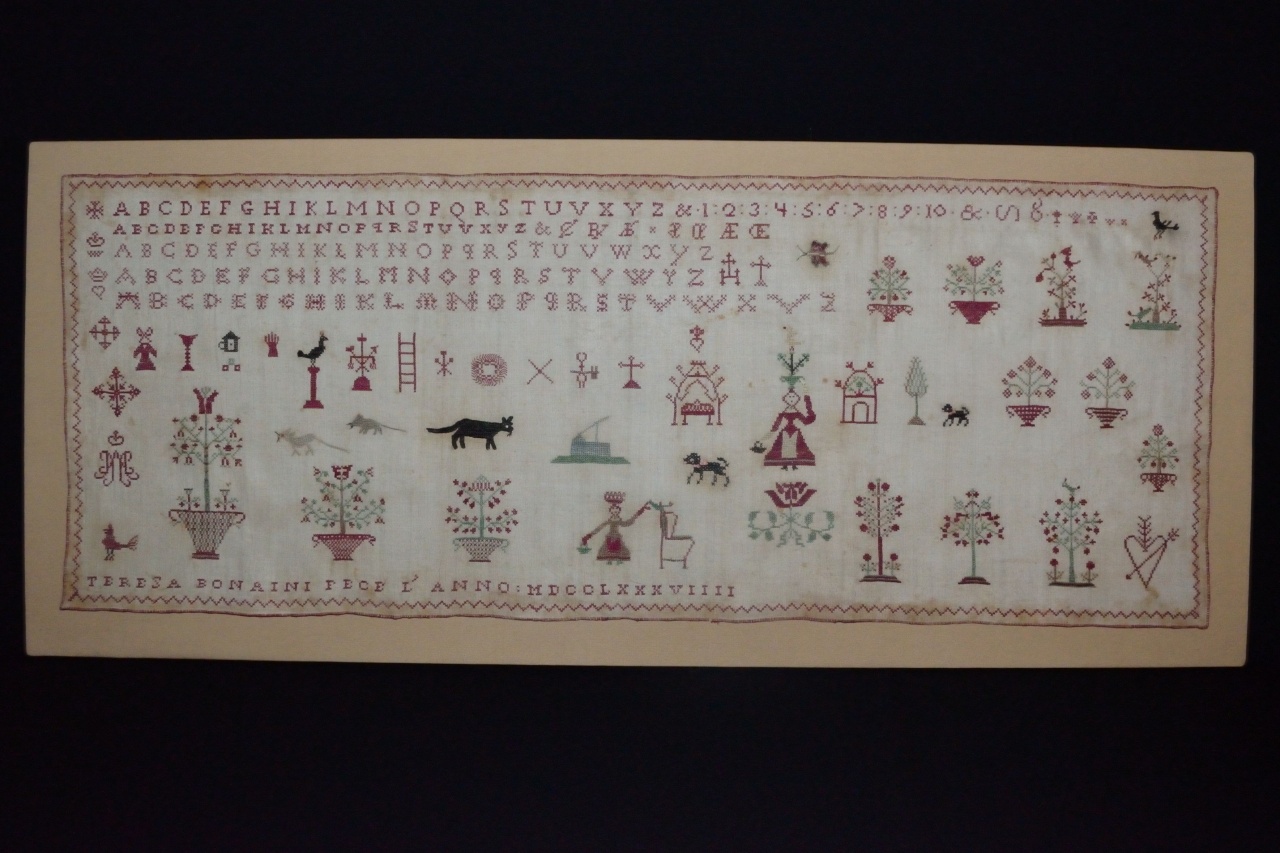 A B C D E F G H I K L M N O P Q R S T U V X Y Z & · 1 : 2 : 3 : 4 : 5 : 6 : 7 · 8 : 9 : 10 · &
A B C D E F G H I K L M N O P q R S T U V X Y Z & Æ Œ
A B C D E F G H I K L M N O P q R S T U V W X Y Z
A B C D E F G H I K L M N O P q R S T V W Y Z
A B C D E F G H I K L M N O P q R S T V W X Y Z
TERESA BONAINI FECE L' ANNO : MDCCLXXXVIIII